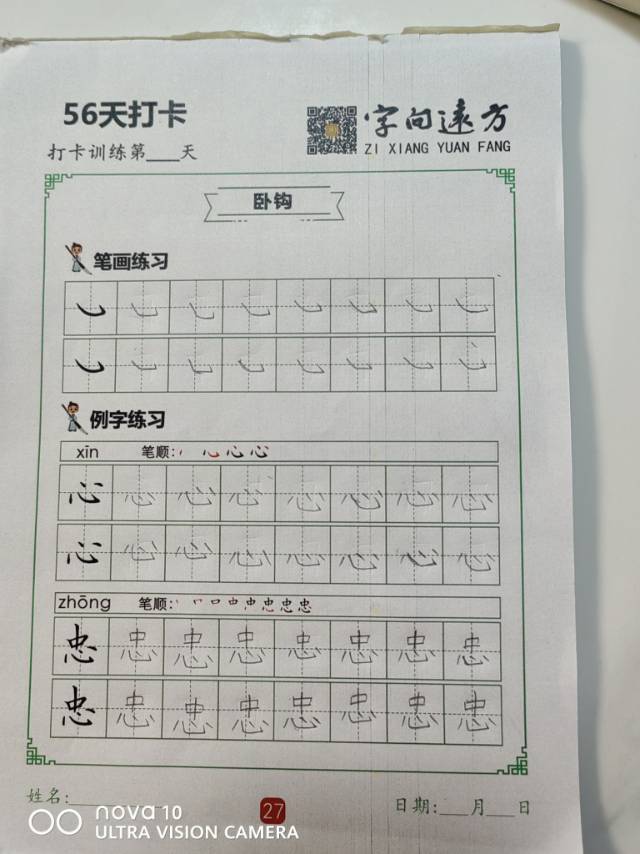 56天打卡
字向远方
打卡训练第____天
ZI XIANG YUAN FANG
卧钩
笔画练习
例字练习
xīn 笔顺:
心 心 心 心 心 心 心 心
心 心 心 心 心 心 心 心
zhōng 笔顺:
忠 忠 忠 忠 忠 忠 忠 忠
忠 忠 忠 忠 忠 忠 忠 忠
姓名:
27
日期:___月___日
nova 10
ULTRA VISION CAMERA